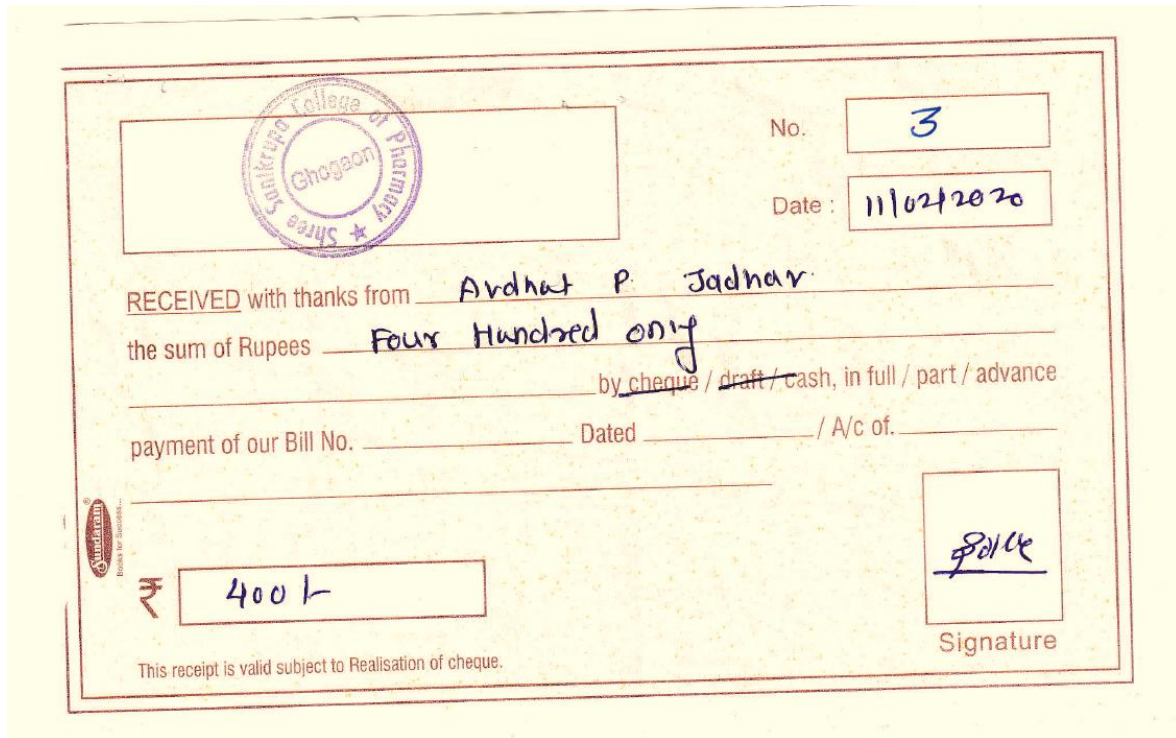 Shree Santkrupa College of Pharmacy ★
Ghogaon
No. 3
Date : 11/02/2020
RECEIVED with thanks from Avdhut P. Jadhav
the sum of Rupees Four Hundred only
by cheque / draft / cash, in full / part / advance
payment of our Bill No. Dated / A/c of.
Sundaram®
Books for Success...
₹ 400/-
Signature
This receipt is valid subject to Realisation of cheque.